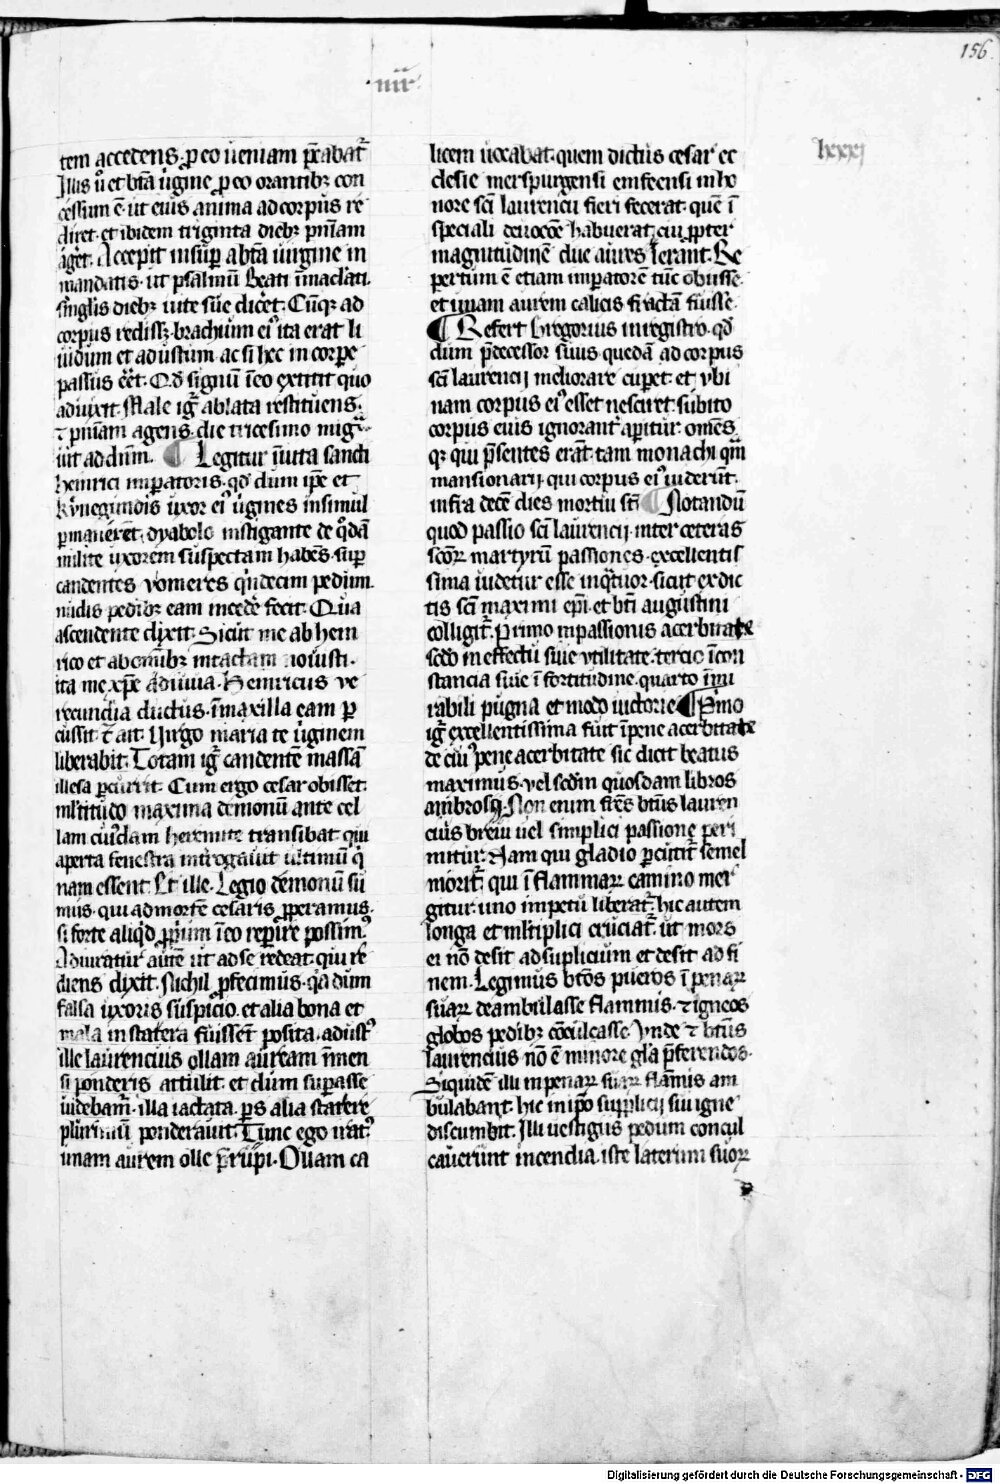 156
·iiii·
lxxxj
tem accedens· p eo ueniam p̄cabat᷑
Illis u̾ et bt̄a uͥgine p eo orantibꝫ con
cessum ē· ut eius anima ad corpus re
diret· et ibidem triginta diebꝫ pn̄iam
aget᷑· Accepit insup̱ a bt̄a uirgine in
mandatis· ut psalmū Beati īmaclati·
singlis diebꝫ uite sue dic̾et· Cūqꝫ ad
corpus redissꝫ· brachium eiꝰ ita erat li
uidum et adustum ac si hec in corpe
passus eēt· Qd̄ signum ī eo extitit quo
aduixit· Male igͥ ablata restituens·
⁊ pn̄iam agens· die tricesimo migͣ
uit ad dn̄m· ¶ Legitur ī uita sancti
heinrici imp̱atoris· qd̄ dum ip̄e et
kynegundis uxor eiꝰ uͥgines insimul
p̱man̾ent· dyabolo instigante de qͦdā
milite uxorem suspectam habēs· sup̱
candentes vomeres qͥndecim pedum
nudis pedibꝫ eam incede᷑ fecit· Qua
ascendente dixit· Sicut me ab hein
rico et ab omībꝫ intactam nouisti·
ita me xp̄e adiuua· Heinricus ve
recundia ductus· ī maxilla eam p̱
cussit· ⁊ ait· Uirgo maria te uͥginem
liberabit· Totam igͥ candentē massā
illesa p̱currit· Cum ergo cesar obisset·
ml̄titudo maxima demonū ante cel
lam cuiꝰdam heremite transibat· qui
aperta fenestra int̾rogauit ultimū qͥ
nam essent· Et ille· Legio demonū su
mus· qui ad mortē cesaris ꝓperamus·
si forte aliqͥd ꝓpͥum ī eo rep̱ire possimꝰ
Adiuratur autē ut ad se redeat· qui re
diens dixit· Nichil ꝓfecimus· qͣ dum
falsa uxoris suspicio· et alia bona et
mala in statera fuissent posita· adustꝰ
ille laurencius ollam auream īmen
si ponderis attulit· et dum sup̱asse
uidebam̾· illa iactata· p̱s alia statere
plurimū ponderauit· Tunc ego iratꝰ
unam aurem olle p̄rupi· Ollam ca
licem uocabat· quem dictus cesar ec
clesie merspurgensi emseensi in ho
nore sc̄i laurencii fieri fecerat· quē ī
speciali deuocōe habuerat· cui ꝓpter
magnitudinē due aures ferant᷑· Re
pertum ē etiam imp̱atorē tūc obiisse·
et unam aurem calicis fractā fuisse·
¶ Refert Gregorius in registro· qd̄
dum p̄decessor suus quedā ad corpus
sc̄i laurencij meliorare cup̱et· et vbi
nam corpus eiꝰ esset nesciret· subito
corpus eius ignorant᷑ ap̱itur· om̄es
qꝫ qui p̄sentes erāt· tam monachi qͣm
mansionarij· qui corpus eiꝰ uiderūt·
infra decē dies mortui sūt ¶ Notandū
quod passio sc̄i laurencij· inter ceteras
sc̄oꝝ martyrū passiones· excellentis
sima uidetur esse in qͣtuor· sicut ex dic
tis sc̄i maximi ep̄i· et bt̄i augustini
colligit᷑· Primo in passionis acerbitate
scd̄o in effectu siue vtilitate· tercio ī con
stancia siue ī fortitudine· quarto ī mi
rabili pugna et modo uictorie ¶ Pͥmo
igͥ excellentissima fuit ī pene acerbitate
de cuiꝰ pene acerbitate sic dicit beatus
maximus· vel scd̄m quosdam libros
ambrosiꝰ· Non enim frēs bt̄us lauren
cius breui uel simplici passione peri
mitur· Nam qui gladio p̱cutit᷑ semel
morit᷑· qui ī flammaꝝ camino mer
gitur· uno impetu liberat᷑· hic autem
longa et ml̄tiplici cruciat᷑· ut mors
ei nō desit ad suplicium et desit ad fi
nem· Legimus bt̄os pueros ī penaꝝ
suaꝝ deambulasse flammis· ⁊ igneos
globos pedibꝫ cōculcasse· Vnde ⁊ bt̄us
Laurencius nō ē minore gl̄a p̄ferendus·
Siquidē illi in penaꝝ suaꝝ flāmis am
bulabant· hic in ip̄o supplicij sui igne
discumbit· Illi uestigiis pedum concul
cauerunt incendia· iste laterum suoꝝ
Digitalisierung gefördert durch die Deutsche Forschungsgemeinschaft - DFG